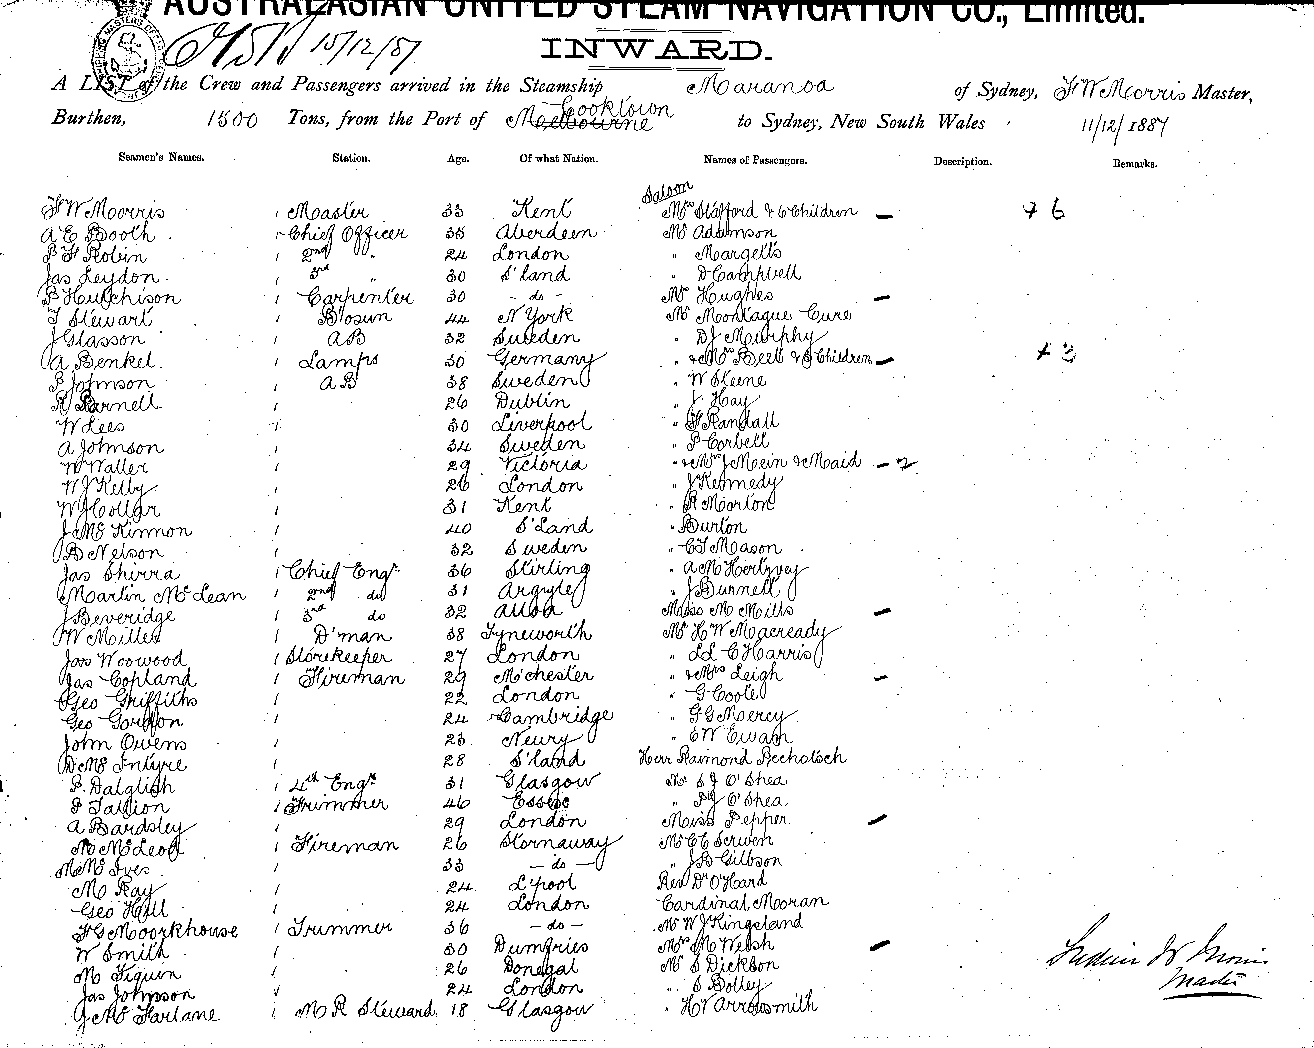 AUSTRALASIAN UNITED STEAM NAVIGATION CO., Limited.
15/12/87
INWARD.
A LIST of the Crew and Passengers arrived in the Steamship Maranoa of Sydney, F W Morris Master,
Burthen, 1500 Tons, from the Port of Melbourne Cooktown to Sydney, New South Wales 11/12/1887
Seamen's Names. Station. Age. Of what Nation. Names of Passengers. Description. Remarks.
Saloon
F W Morris Master 33 Kent Mrs Stafford & 6 Children — + 6
A E Booth Chief Officer 35 Aberdeen Mr Adamson
P F Robin 2nd " 24 London " Margetts
Jas Leydon 3rd " 30 S'land " D Campbell
P Hutchison Carpenter 30 - do - Mrs Hughes —
T Stewart B'osun 44 N York Mr Montague Cure
J Glasson AB 32 Sweden " DJ Murphy
A Benkel Lamps 30 Germany " & Mrs Beet & 3 Children — + 3
P Johnson AB 38 Sweden " W Steene
R Parnell 26 Dublin " J Hay
W Lees 30 Liverpool " F Randall
A Johnson 34 Sweden " P Corbett
W Waller 29 Victoria " & Mrs J Mein & Maid — 2
W J Kelby 26 London " J Kennedy
W J Collar 31 Kent " R Morton
J McKinnon 40 S'Land " Burton
B Nelson 32 Sweden " C F Mason
Jas Shirra Chief Engr 36 Stirling " A McHertyvey
Martin McLean 2nd do 31 Argyle " J Burnett
J Beveridge 3rd do 32 Alloa Miss M Mills —
W Miller D'man 38 Tyneworth Mr H W Macready
Jas Woowood Storekeeper 27 London " Ld C Harris
Jas Copland Fireman 29 M'chester " & Mrs Leigh —
Geo Griffiths 22 London " G Coote
Geo Gordon 24 Cambridge " G G Mercy
John Owens 23 Newry " E W Ewan
D McIntyre 28 S'land Herr Raimond Pechotsch
P Dalglish 4th Engr 31 Glasgow Mr S J O'Shea
P Tallion Trimmer 46 Essex " P J O'Shea
A Bardsley 29 London Miss Pepper —
N McLeod Fireman 26 Stornaway Mr C C Serwen
M McIver 33 - do - " J B Gibson
M Ray 24 L'pool Rev Dr O'Hard
Geo Hill 24 London Cardinal Mooran
F G Moorkhouse Trimmer 36 - do - Mr W J Kingsland
W Smith 30 Dumfries Mrs M Welsh —
M Tiguin 26 Donegal Mr S Dickson
Jas Johnson 24 London " S Botley
J McFarlane M R Steward 18 Glasgow " H V Arrowsmith
W Morris
Master